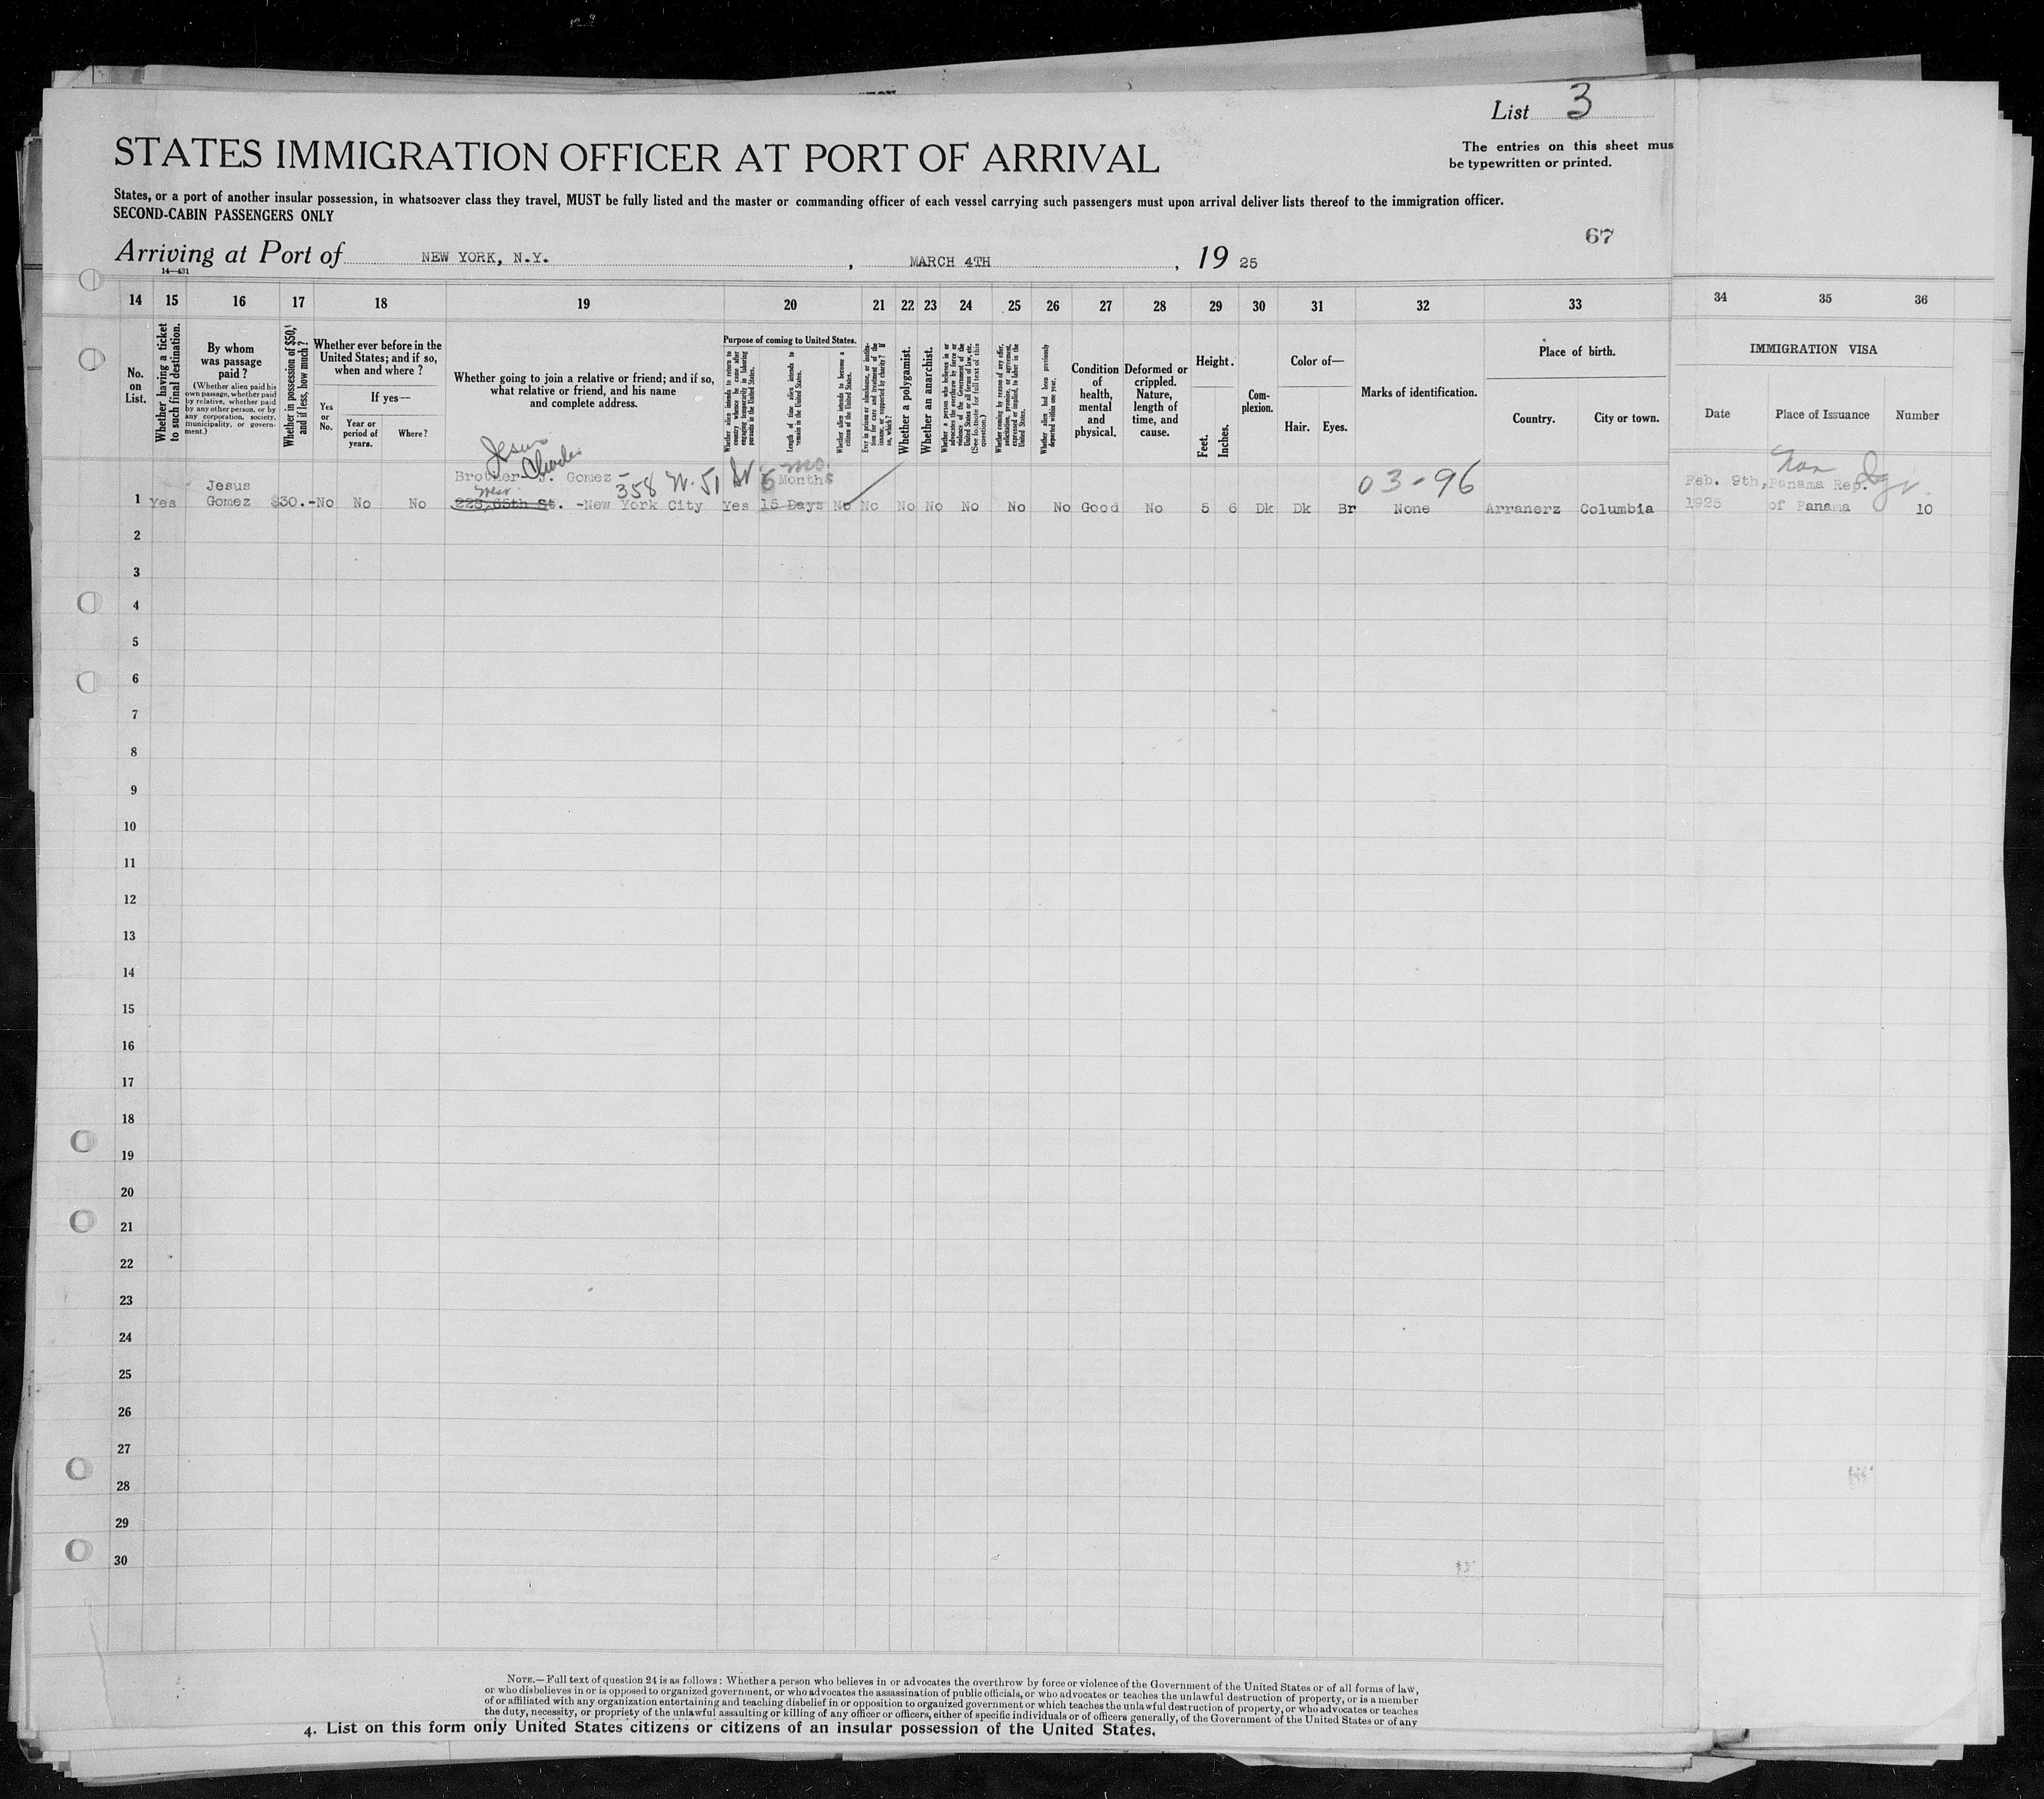 List 3
STATES IMMIGRATION OFFICER AT PORT OF ARRIVAL
The entries on this sheet mus
be typewritten or printed.
States, or a port of another insular possession, in whatsoever class they travel, MUST be fully listed and the master or commanding officer of each vessel carrying such passengers must upon arrival deliver lists thereof to the immigration officer.
SECOND-CABIN PASSENGERS ONLY
67
Arriving at Port of NEW YORK, N.Y. , MARCH 4TH , 19 25
14—431
14 15 16 17 18 19 20 21 22 23 24 25 26 27 28 29 30 31 32 33 34 35 36
No. on List.
Whether having a ticket to such final destination.
By whom was passage paid?
(Whether alien paid his own passage, whether paid by relative, whether paid by any other person, or by any corporation, society, municipality, or government.)
Whether in possession of $50, and if less, how much?
Whether ever before in the United States; and if so, when and where?
Yes or No.
If yes—
Year or period of years.
Where?
Whether going to join a relative or friend; and if so, what relative or friend, and his name and complete address.
Purpose of coming to United States.
Whether alien intends to return to country whence he came after engaging temporarily in laboring pursuits in the United States.
Length of time alien intends to remain in the United States.
Whether alien intends to become a citizen of the United States.
Ever in prison or almshouse, or institution for care and treatment of the insane, or supported by charity? If so, which?
Whether a polygamist.
Whether an anarchist.
Whether a person who believes in or advocates the overthrow by force or violence of the Government of the United States or all forms of law, etc. (See footnote for full text of this question.)
Whether coming by reason of any offer, solicitation, promise, or agreement, expressed or implied, to labor in the United States.
Whether alien had been previously deported within one year.
Condition of health, mental and physical.
Deformed or crippled. Nature, length of time, and cause.
Height.
Feet.
Inches.
Complexion.
Color of—
Hair.
Eyes.
Marks of identification.
Place of birth.
Country.
City or town.
IMMIGRATION VISA
Date
Place of Issuance
Number
Jesus
Jesus Brother J. Gomez - 358 W. 51 St 6 mo. Months 03-96 Non Feb. 9th, Panama Rep.
West
1 Yes Gomez $30.- No No No 228,65th St. -New York City Yes 15 Days No No No No No No No Good No 5 6 Dk Dk Br None Arranerz Columbia 1925 of Panama 10
2
3
4
5
6
7
8
9
10
11
12
13
14
15
16
17
18
19
20
21
22
23
24
25
26
27
28
29
30
NOTE.—Full text of question 24 is as follows: Whether a person who believes in or advocates the overthrow by force or violence of the Government of the United States or of all forms of law,
or who disbelieves in or is opposed to organized government, or who advocates the assassination of public officials, or who advocates or teaches the unlawful destruction of property, or is a member
of or affiliated with any organization entertaining and teaching disbelief in or opposition to organized government or which teaches the unlawful destruction of property, or who advocates or teaches
the duty, necessity, or propriety of the unlawful assaulting or killing of any officer or officers, either of specific individuals or of officers generally, of the Government of the United States or of any
4. List on this form only United States citizens or citizens of an insular possession of the United States.